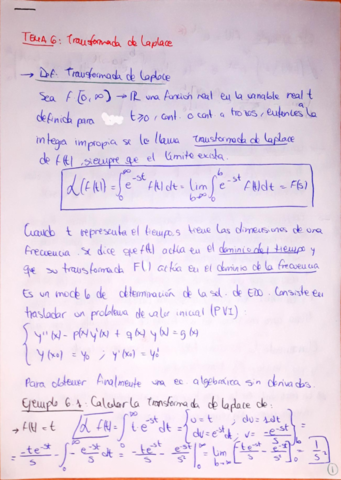 TEMA 6: Transformada de Laplace
→ Def. Transformada de Laplace
Sea f [0, ∞) → ℝ una función real en la variable real t
definida para t≥0, cont. o cont a trozos, entonces a la
integral impropia se le llama Transformada de Laplace
de f(t), siempre que el límite exista.
ℒ(f(t)) = ∫₀^∞ e^{-st} f(t)dt = lim_{b→∞} ∫₀^b e^{-st} f(t)dt = F(s)
Cuando t representa el tiempo, s tiene las dimensiones de una
frecuencia. Se dice que f(t) actúa en el dominio del tiempo y
que su transformada F() actúa en el dominio de la frecuencia
Es un modelo de determinación de la sol. de EDO. Consiste en
trasladar un problema de valor inicial (PVI)
{ y''(x) - p(x) y'(x) + q(x) y(x) = g(x)
y(x₀) = y₀ ; y'(x₀) = y₀'
Para obtener finalmente una ec. algebraica sin derivadas.
Ejemplo 6.1. Calcular la Transformada de Laplace de:
→ f(t) = t ℒ f(t) = ∫₀^∞ t e^{-st} dt = { u = t ; du = 1dt
dv = e^{-st} ; v = -e^{-st}/s } =
-te^{-st}/s - ∫₀^∞ -e^{-st}/s dt = -te^{-st}/s - e^{-st}/s² |₀^∞ = lim_{b→∞} [-te^{-st}/s - e^{-st}/s²]₀^b = 1/s²
1